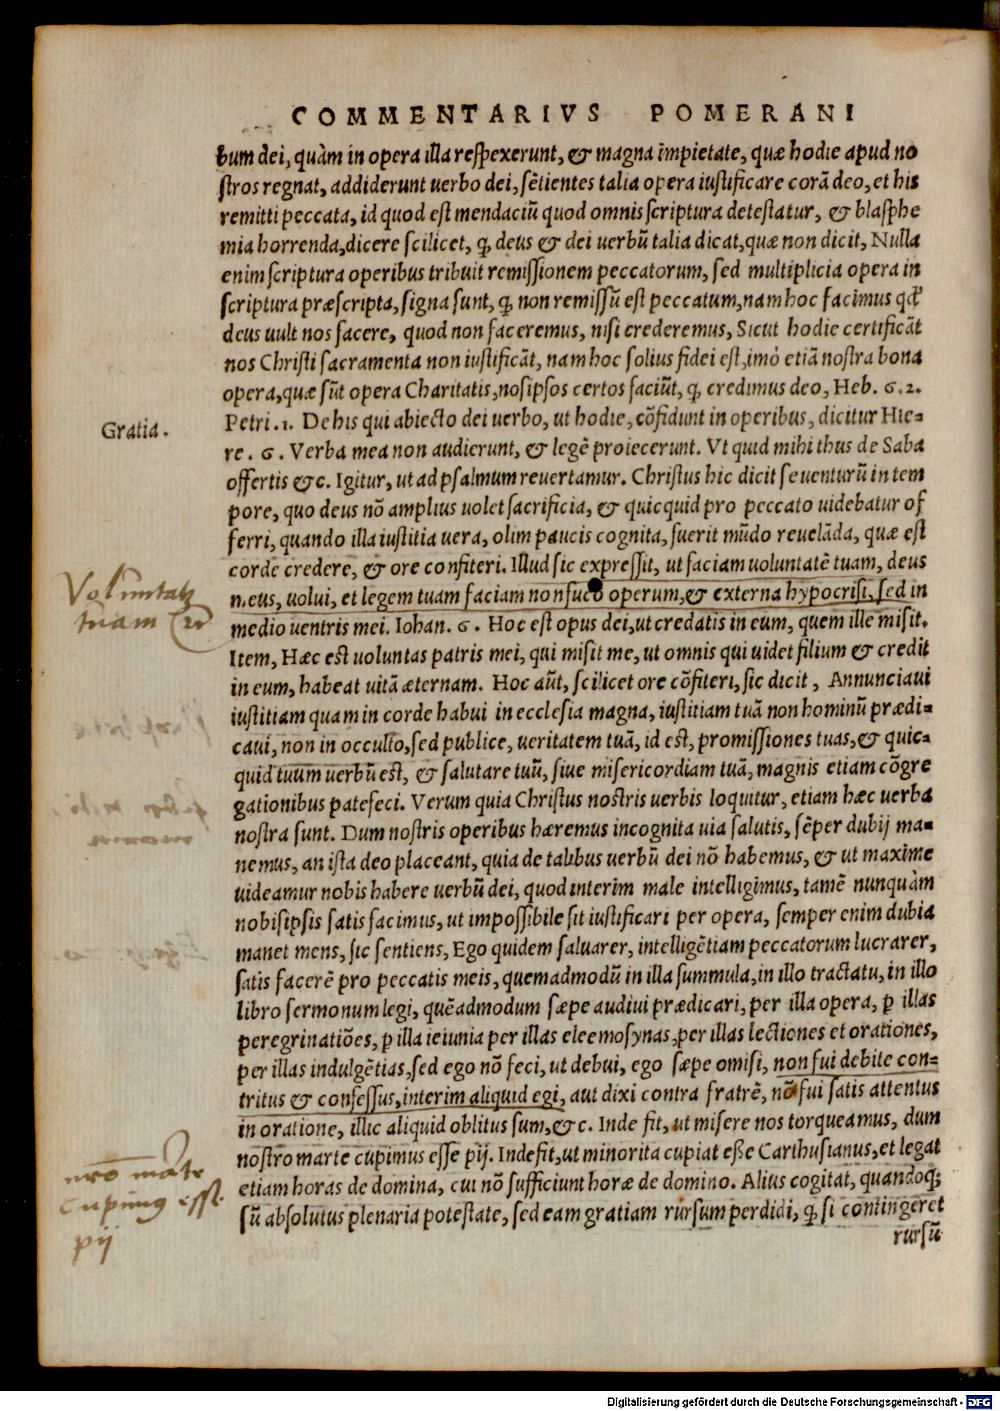 COMMENTARIVS POMERANI
bum dei, quàm in opera illa respexerunt, & magna impietate, quæ hodie apud no
stros regnat, addiderunt uerbo dei, sẽtientes talia opera iustificare corã deo, et his
remitti peccata, id quod est mendaciũ quod omnis scriptura detestatur, & blasphe
mia horrenda, dicere scilicet, ꝙ deus & dei uerbũ talia dicat, quæ non dicit, Nulla
enim scriptura operibus tribuit remissionem peccatorum, sed multiplicia opera in
scriptura præscripta, signa sunt, ꝙ non remissũ est peccatum, nam hoc facimus qđ
deus uult nos facere, quod non faceremus, nisi crederemus, Sicut hodie certificãt
nos Christi sacramenta non iustificãt, nam hoc solius fidei est, imò etiã nostra bona
opera, quæ sũt opera Charitatis, nosipsos certos faciũt, ꝙ credimus deo, Heb. 6. 2.
Gratia.
Petri .1. De his qui abiecto dei uerbo, ut hodie, cõfidunt in operibus, dicitur Hie-
re . 6 . Verba mea non audierunt, & legẽ proiecerunt. Vt quid mihi thus de Saba
offertis &c. Igitur, ut ad psalmum reuertamur. Christus hic dicit se uenturũ in tem
pore, quo deus nõ amplius uolet sacrificia, & quicquid pro peccato uidebatur of
ferri, quando illa iustitia uera, olim paucis cognita, fuerit mũdo reuelãda, quæ est
corde credere, & ore confiteri. Illud sic expressit, ut faciam uoluntatẽ tuam, deus
Voluntatẽ
tuam
meus, uolui, et legem tuam faciam non fuco operum, & externa hypocrisi, sed in
medio uentris mei. Iohan. 6 . Hoc est opus dei, ut credatis in eum, quem ille misit.
Item, Hæc est uoluntas patris mei, qui misit me, ut omnis qui uidet filium & credit
in eum, habeat uitã æternam. Hoc aũt, scilicet ore cõfiteri, sic dicit, Annunciaui
iustitiam quam in corde habui in ecclesia magna, iustitiam tuã non hominũ prædi-
caui, non in occulto, sed publice, ueritatem tuã, id est, promissiones tuas, & quic-
quid tuum uerbũ est, & salutare tuũ, siue misericordiam tuã, magnis etiam cõgre
gationibus patefeci. Verum quia Christus nostris uerbis loquitur, etiam hæc uerba
nostra sunt. Dum nostris operibus hæremus incognita uia salutis, sẽper dubij ma-
nemus, an ista deo placeant, quia de talibus uerbũ dei nõ habemus, & ut maxime
uideamur nobis habere uerbũ dei, quod interim male intelligimus, tamẽ nunquàm
nobisipsis satis facimus, ut impossibile sit iustificari per opera, semper enim dubia
manet mens, sic sentiens, Ego quidem saluarer, intelligẽtiam peccatorum lucrarer,
satis facerẽ pro peccatis meis, quemadmodũ in illa summula, in illo tractatu, in illo
libro sermonum legi, quẽadmodum sæpe audiui prædicari, per illa opera, ꝑ illas
peregrinatiões, ꝑ illa ieiunia per illas eleemosynas, per illas lectiones et orationes,
per illas indulgẽtias, sed ego nõ feci, ut debui, ego sæpe omisi, non fui debite con-
tritus & confessus, interim aliquid egi, aut dixi contra fratrẽ, nõ fui satis attentus
in oratione, illic aliquid oblitus sum, &c. Inde fit, ut misere nos torqueamus, dum
nr̃o marte
cupimus esse
pij
nostro marte cupimus esse pij. Inde fit, ut minorita cupiat esse Carthusianus, et legat
etiam horas de domina, cui nõ sufficiunt horæ de domino. Alius cogitat, quandoq;
sũ absolutus plenaria potestate, sed eam gratiam rursum perdidi, ꝙ si contingeret
rursũ
Digitalisierung gefördert durch die Deutsche Forschungsgemeinschaft - DFG